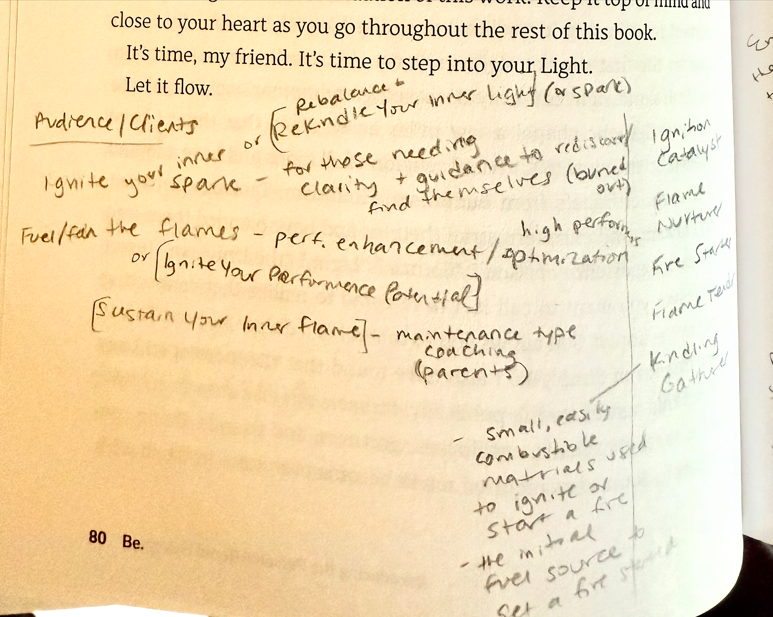 of this work. Keep it top of mind and
close to your heart as you go throughout the rest of this book.
It's time, my friend. It's time to step into your Light.
Let it flow.
Rebalance
Audience/Clients
or [Rekindle Your Inner Light (or spark)
Ignite your inner spark - for those needing
clarity + guidance to rediscover/
find themselves (burned
out)
Fuel/fan the flames - perf. enhancement/optimization
high performers
or [Ignite Your Performance Potential]
[Sustain Your Inner Flame] - maintenance type
coaching
(parents)
Ignition
Catalyst
Flame
Nurturer
Fire Starter
Flame Tender
Kindling
Gatherer
- small, easily
combustible
materials used
to ignite or
start a fire
- the initial
fuel source to
get a fire started
80 Be.